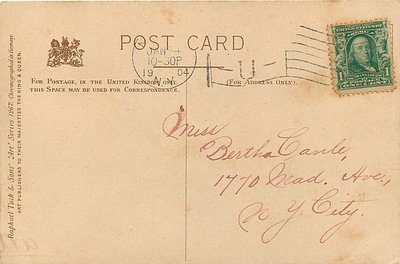 POST CARD
JAN
10-30P
19 04
U
FOR POSTAGE, IN THE UNITED KINGDOM ONLY,
THIS SPACE MAY BE USED FOR CORRESPONDENCE.
(FOR ADDRESS ONLY).
Raphael Tuck & Sons' "Art" Series 1967. Chromographed in Germany.
ART PUBLISHERS TO THEIR MAJESTIES THE KING & QUEEN.
Miss
Bertha
1770 Mad. Ave.,
N. Y. City.